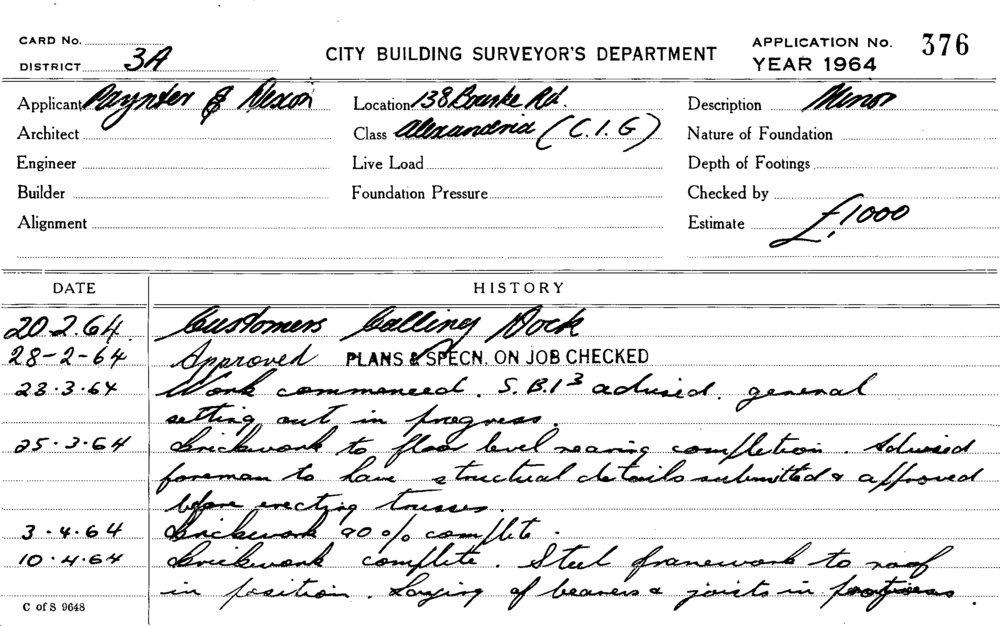 CARD No.
DISTRICT 3A
CITY BUILDING SURVEYOR'S DEPARTMENT
APPLICATION No. 376
YEAR 1964
Applicant Paynter & Dixon
Location 138 Bourke Rd.
Description Minor
Architect
Class Alexandria (C.I.G)
Nature of Foundation
Engineer
Live Load
Depth of Footings
Builder
Foundation Pressure
Checked by
Alignment
Estimate £1000
DATE HISTORY
20.2.64 Customers Calling Dock
28-2-64 Approved PLANS & SPECN. ON JOB CHECKED
23.3.64 Work commenced. S.B.I 3 advised. general
setting out in progress.
25.3.64 Brickwork to floor level nearing completion. Advised
foreman to have structural details submitted & approved
before erecting trusses.
3.4.64 Brickwork 90% complete.
10.4.64 Brickwork complete. Steel framework to roof
in position. Laying of bearers & joists in progress.
C of S 9648